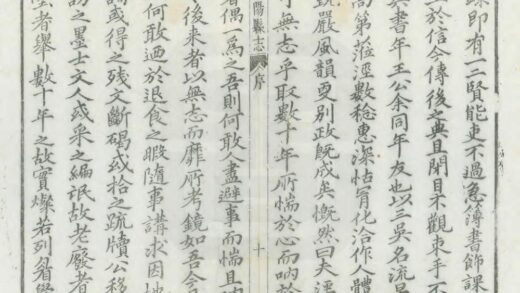 課即有一二賢能吏不過急簿書飾課
於信今傳後之典且閣目不觀束手不
其書年王公余同年友也以三吳名流呈
高第蒞涇數稔惠深怙冐化洽作人體
飭嚴風韻更別政旣成矣慨然曰夫涇
可無志乎取數十年所惴於心而吶於
者偶一爲之吾則何敢人盡避事而惴且吶
後来者以無志而靡所考鏡如吾今
何敢廼於退食之暇隨事講求因地
詢或得之残文斷碣或拾之䟽牘公移
訪之墨士文人或采之編氓故老廢者
墜者舉數十年之故實燦若列眉
陽縣志
序
十